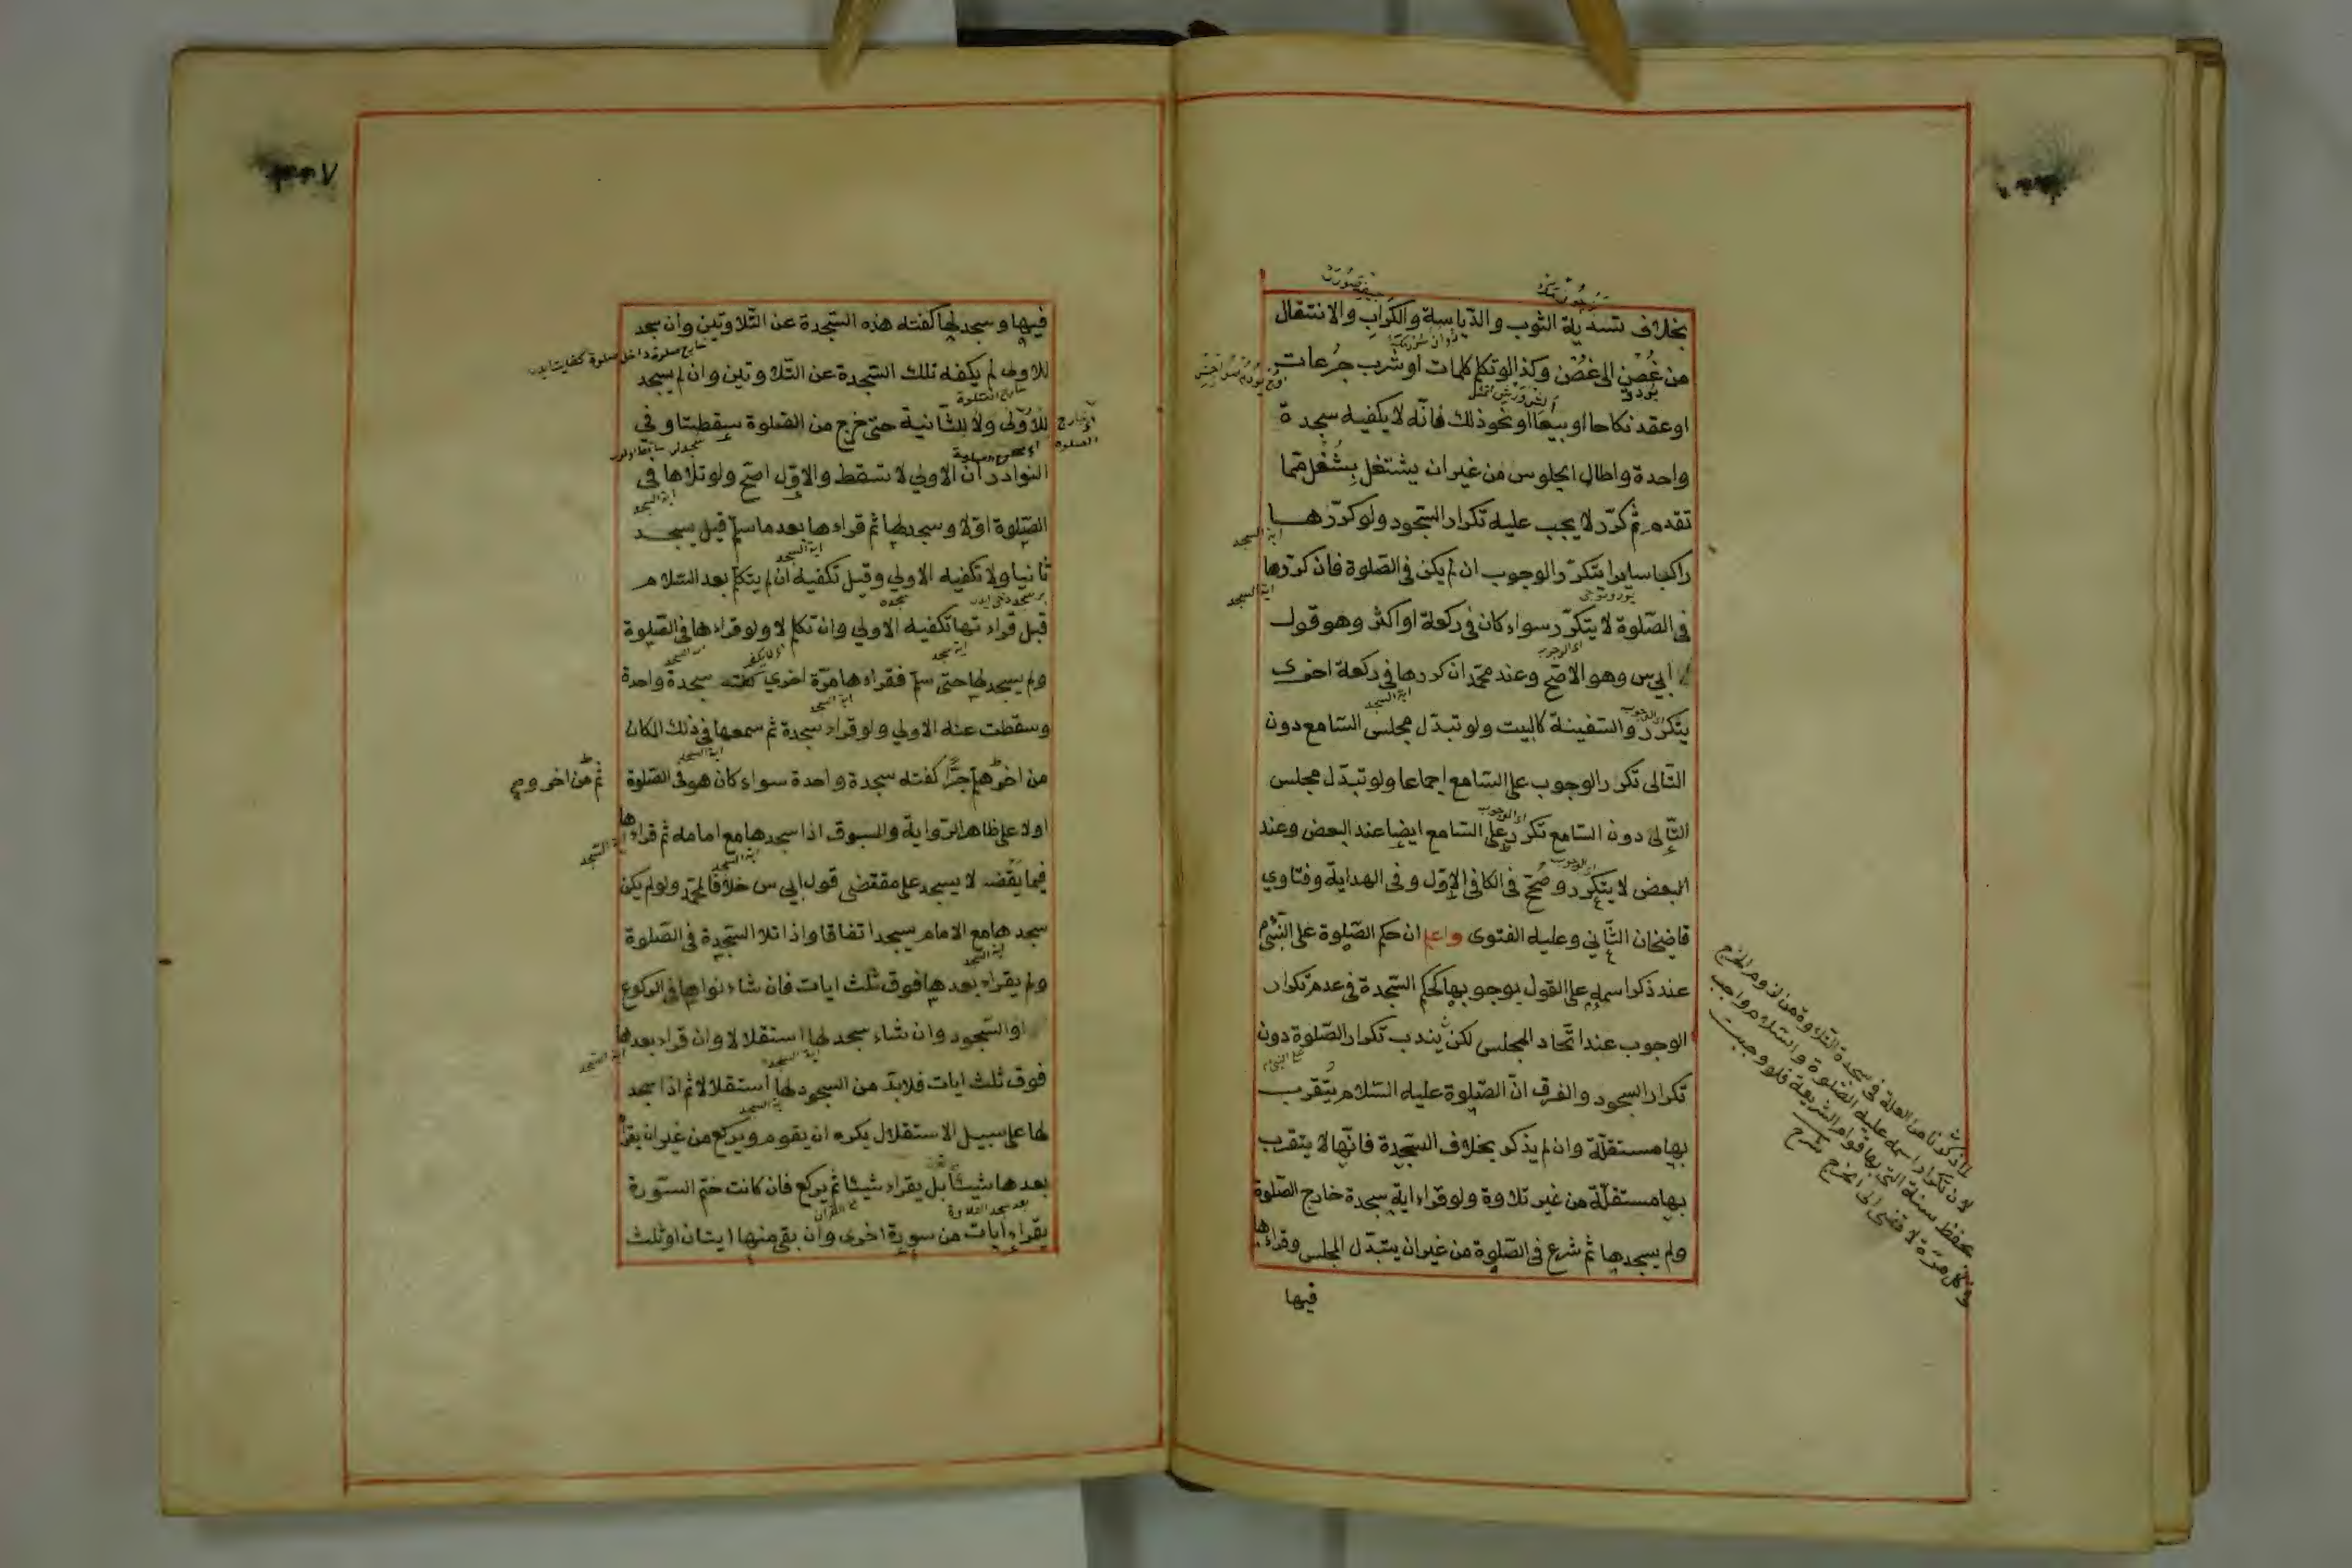 بخلاف تسدية الثوب والدياسة والكراب والانتقال
من غُصْنٍ الى غصُن وكذا لو تكلم كلمات او شرب جُرعات
او عقد نكاحا او بيعًا او نحو ذلك فانّه لا يكفيه سجدة
واحدة واطال الجلوس من غير ان يشتغل بِشُغْلٍ ممّا
تقدم ثم كرّر لا يجب عليه تكرار السّجود ولو كرّرها
راكبا سايرا يتكرّر الوجوب ان لم يكن فى الصّلوة فان كرّرها
فى الصّلوة لا يتكرّر سواء كان فى ركعة او اكثر وهو قول
ابي س وهو الاصحّ وعند محمّد ان كررها فى ركعة اخرى
يتكرّر والسّفينة كالبيت ولو تبدّل مجلس السّامع دون
التّالى تكرر الوجوب على السّامع اجماعا ولو تبدّل مجلس
التّالى دون السّامع تكرّر على السّامع ايضا عند البعض وعند
البعض لا يتكرر وصُحّح فى الكافى الاوّل وفى الهداية وفتاوي
قاضيخان الثّاني وعليه الفتوى واعلم ان حكم الصّلوة على النّبيّ م
عند ذكر اسمه على القول بوجوبها كحكم السّجدة فى عدم تكرار
الوجوب عند اتّحاد المجلس لكن يندب تكرار الصّلوة دون
تكرار السجود والفرق انّ الصّلوة عليه السّلام يُتقرب
بها مستقلّة وان لم يذكر بخلاف السّجدة فانّها لا يتقرب
بها مستقلّة من غير تلاوة ولو قراء اية سجدة خارج الصّلوة
ولم يسجدها ثم شرع فى الصّلوة من غير ان يتبدّل المجلس وقراءها
فيها
لما ذكرنا من العلة فى سجدة التلاوة من لزوم الحرج
لان تكرار اسمه عليه الصلوة والسلام واجب
لحفظ سنته التى بها قوام الشريعة فلو وجبت
فى كل مرة لافضى الى الحرج شرح
فيها وسجد لها كفته هذه السّجدة عن التّلاوتين وان سجد
للاولى لم يكفه تلك السّجدة عن التّلاوتين وان لم يسجد
للاولى ولا للثّانية حتى خرج من الصّلوة سقطتا وفى
النوادر ان الاولي لا تسقط والاوّل اصحّ ولو تلاها فى
الصّلوة اوّلا وسجد لها ثم قراءها بعد ما سلّم قيل يسجد
ثانيا ولا تكفيه الاولي وقيل تكفيه ان لم يتكلّم بعد السّلام
قبل قراءتها تكفيه الاولي وان تكلم لا ولو قراءها فى الصّلوة
ولم يسجد لها حتى سلّم فقراءها مرّة اخري كفته سجدة واحدة
وسقطت عنه الاولي ولو قراء سجدة ثم سمعها فى ذلك المكان
من اخر هلمّ جرًّا كفته سجدة واحدة سواء كان هو فى الصّلوة
ثم من اخر وم
او لا على ظاهر الرّواية والمسبوق اذا سجدها مع امامه ثم قراءها
فيما يقضه لا يسجد على مقتضى قول ابي س خلافا لمحمّد ولو لم يكن
سجدها مع الامام يسجد اتفاقا واذا تلا السّجدة فى الصّلوة
ولم يقراء بعدها فوق ثلث ايات فان شاء نواها فى الركوع
او السّجود وان شاء سجد لها استقلالا وان قراء بعدها
فوق ثلث ايات فلابدّ من السجود لها استقلالا ثم اذا سجد
لها على سبيل الاستقلال يكره ان يقوم ويركع من غير ان يقرأ
بعدها شيئًا بل يقراء شيئا ثم يركع فان كانت ختم السّورة
يقراء ايات من سورة اخرى وان بقى منها ايتان او ثلث